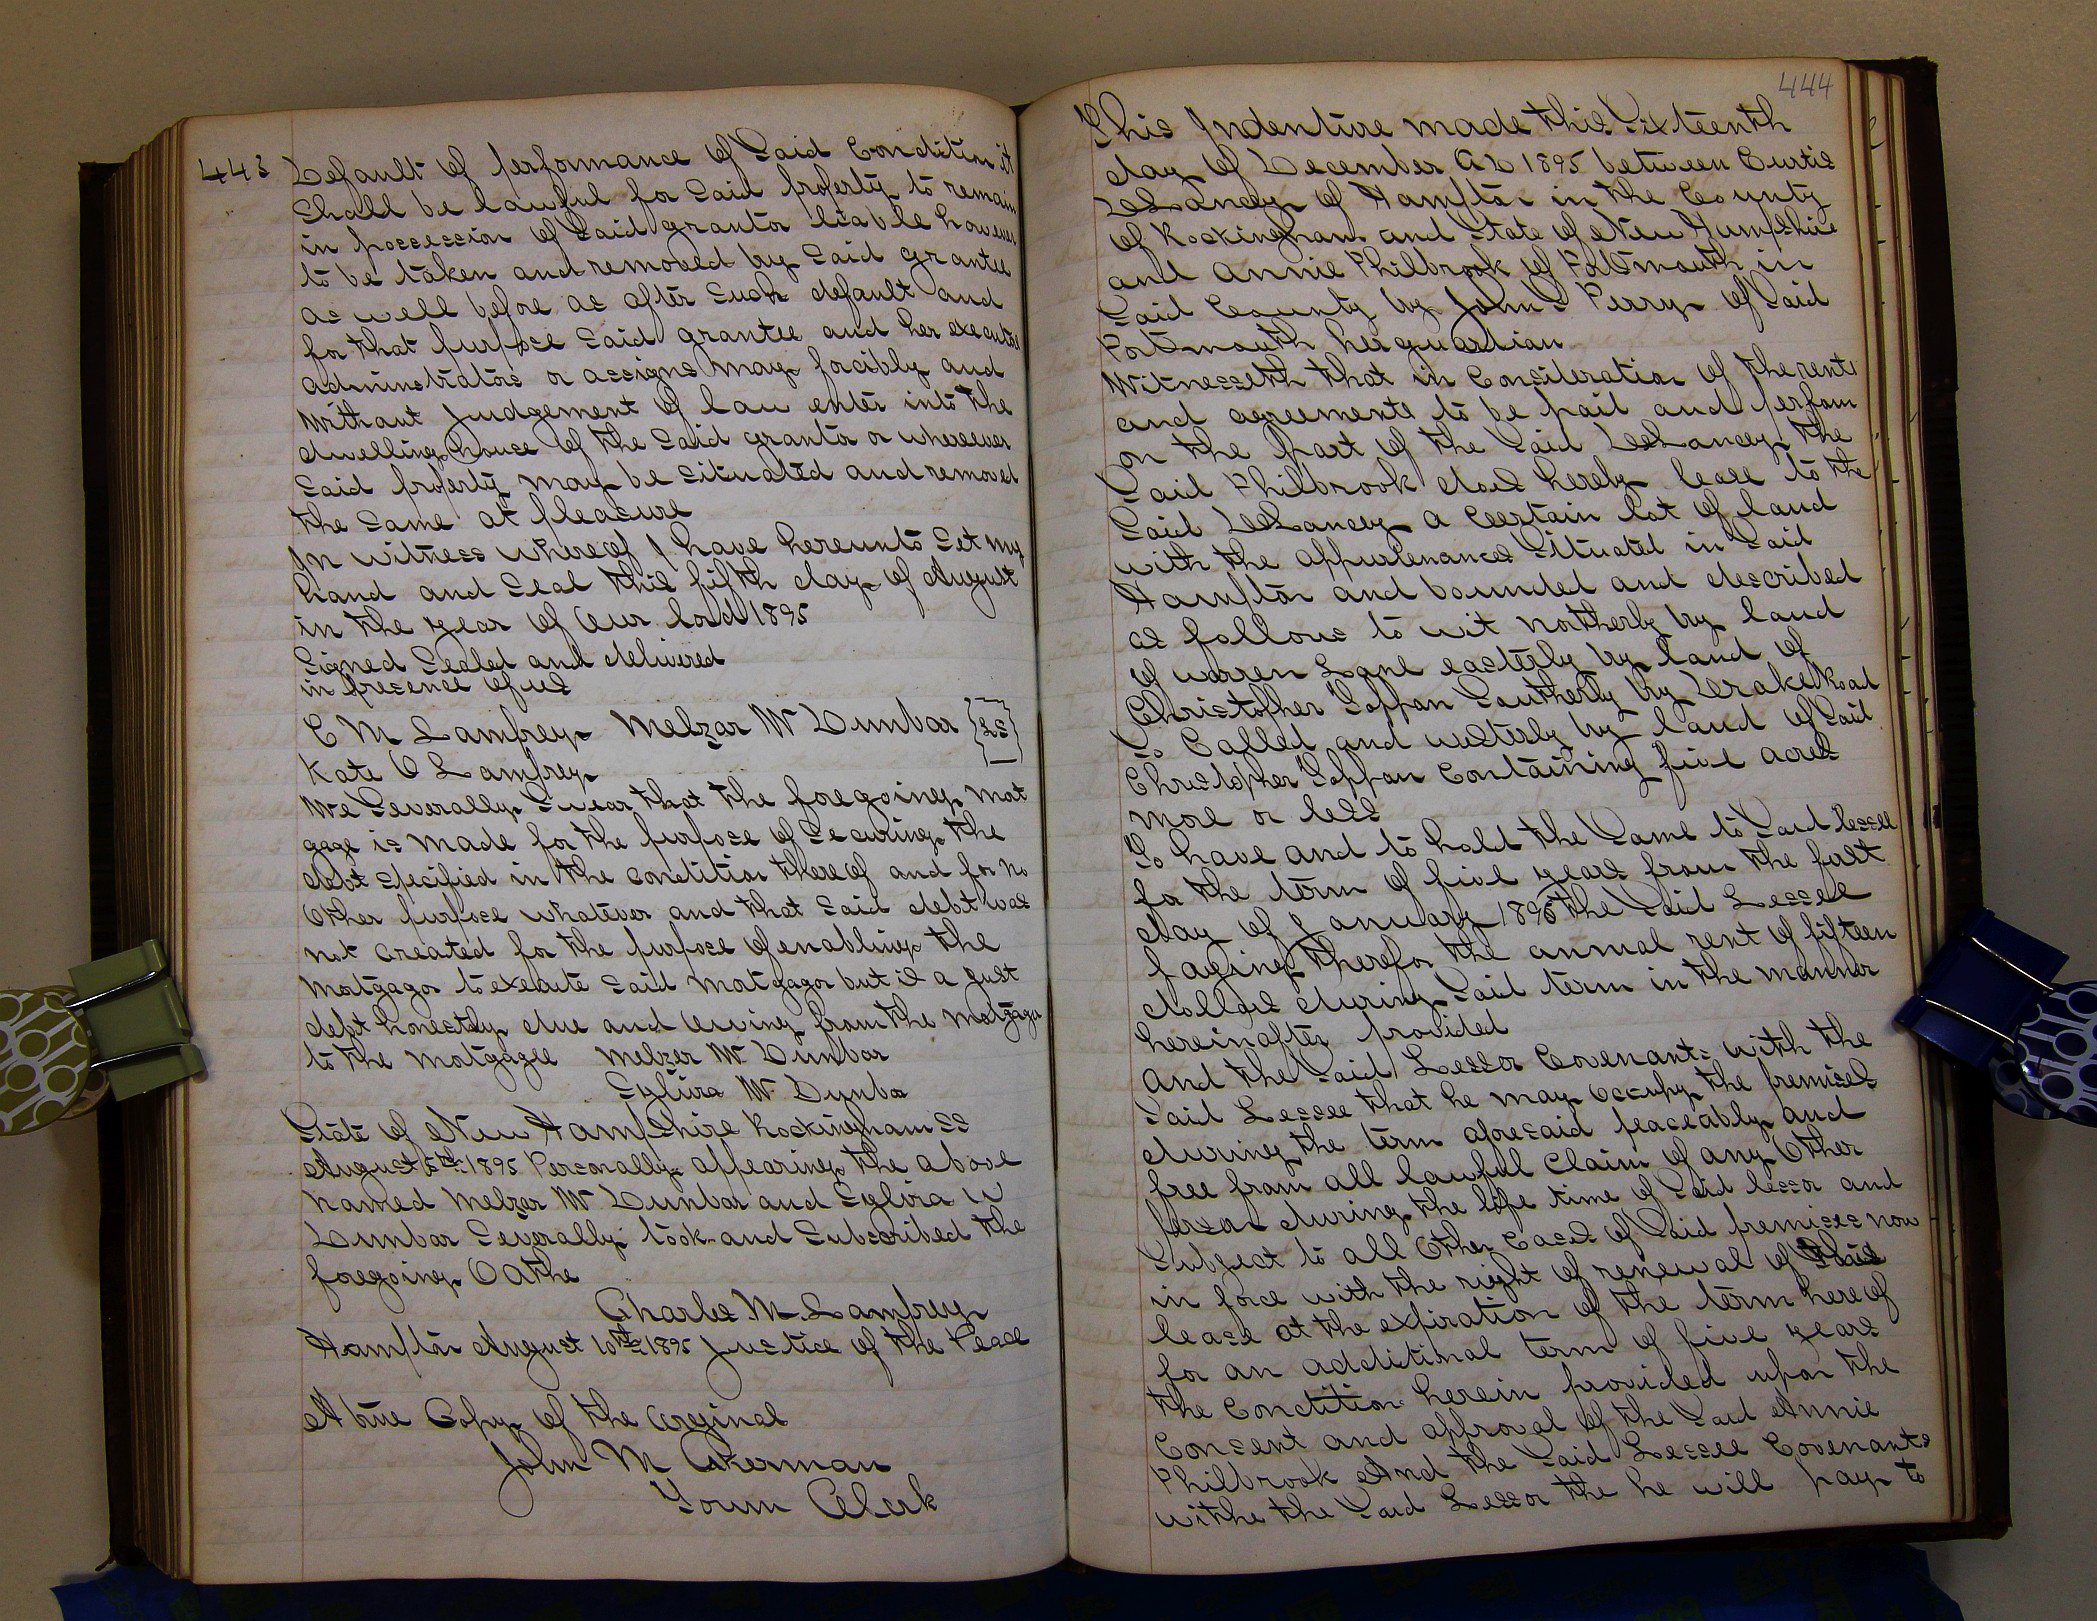 443
Default of performance of Said Condition it
Shall be lawful for Said property to remain
in possession of Said grantor liable however
to be taken and removed by Said grantee
as well before as after Such default and
for that purpose Said grantee and her executor
administrators or assigns may forcibly and
without Judgement of law enter into the
dwelling house of the Said grantor or wherever
Said property may be situated and removed
the Same at pleasure
In witness whereof I have hereunto Set my
hand and Seal this fifth day of August
in the year of Our lord 1895
Signed Sealed and delivered
in presence of us
C M Lamprey Melzar W Dunbar {LS}
Kate O Lamprey
We Severally Swear that the foregoing mot
gage is made for the purpose of Securing the
debt specified in the condition thereof and for no
Other purpose whatever and that Said debt was
not created for the purpose of enabling the
motgagor to execute Said motgagor but is a Just
debt honestly due and Owing from the motgagor
to the motgagee Melzer W Dunbar
Sylvira W Dunbar
State of New Hampshire Rockingham SS
August 5th 1895 Personally appearing the above
named Melzer W Dunbar and Sylvira W
Dunbar Severally took and Subscribed the
foregoing Oathe
Charles M Lamprey
Hampton August 10th 1895 Justice of the Peace
A true Copy of the Orginal
John M Akerman
Town Clerk
444
This Indentive made this Sixteenth
day of December AD 1895 between Curtis
DeLancey of Hampton in the County
of Rockingham and State of New Hampshire
and Annie Philbrook of Portsmouth in
Said County by John S Perry of Said
Portsmouth her guardian
Witnesseth that in Consideration of the rents
and agreements to be paid and perfom
on the part of the Said DeLancey the
Said Philbrook does hereby lease to the
Said DeLancey a Certain lot of land
with the appurtenances Situated in Said
Hampton and bounded and described
as follows to wit northerly by land
of warren Lane easterly by land of
Christopher Toppan Southerly by Drake Road
So Called and westerly by land of Said
Christopher Toppan Containing five acres
more or less
To have and to hold the Same to Said lessee
for the term of five years from the first
day of January 1896 the Said Lessee
paying therefor the annual rent of fifteen
dollars during Said term in the manner
hereinafter provided
and the Said Lessor Covenants with the
Said Lessee that he may occupy the premises
during the term aforesaid peaceably and
free from all lawful Claim of any Other
person during the life time of Said lessor and
Subject to all Other Eases of Said premises now
in force with the right of renewal of this
lease at the expiration of the term hereof
for an additinal term of five years
the Condition herein provided upon the
Consent and approval of the Said Annie
Philbrook And the Said Lessee Covenants
withe the Said Lessor the he will pay to